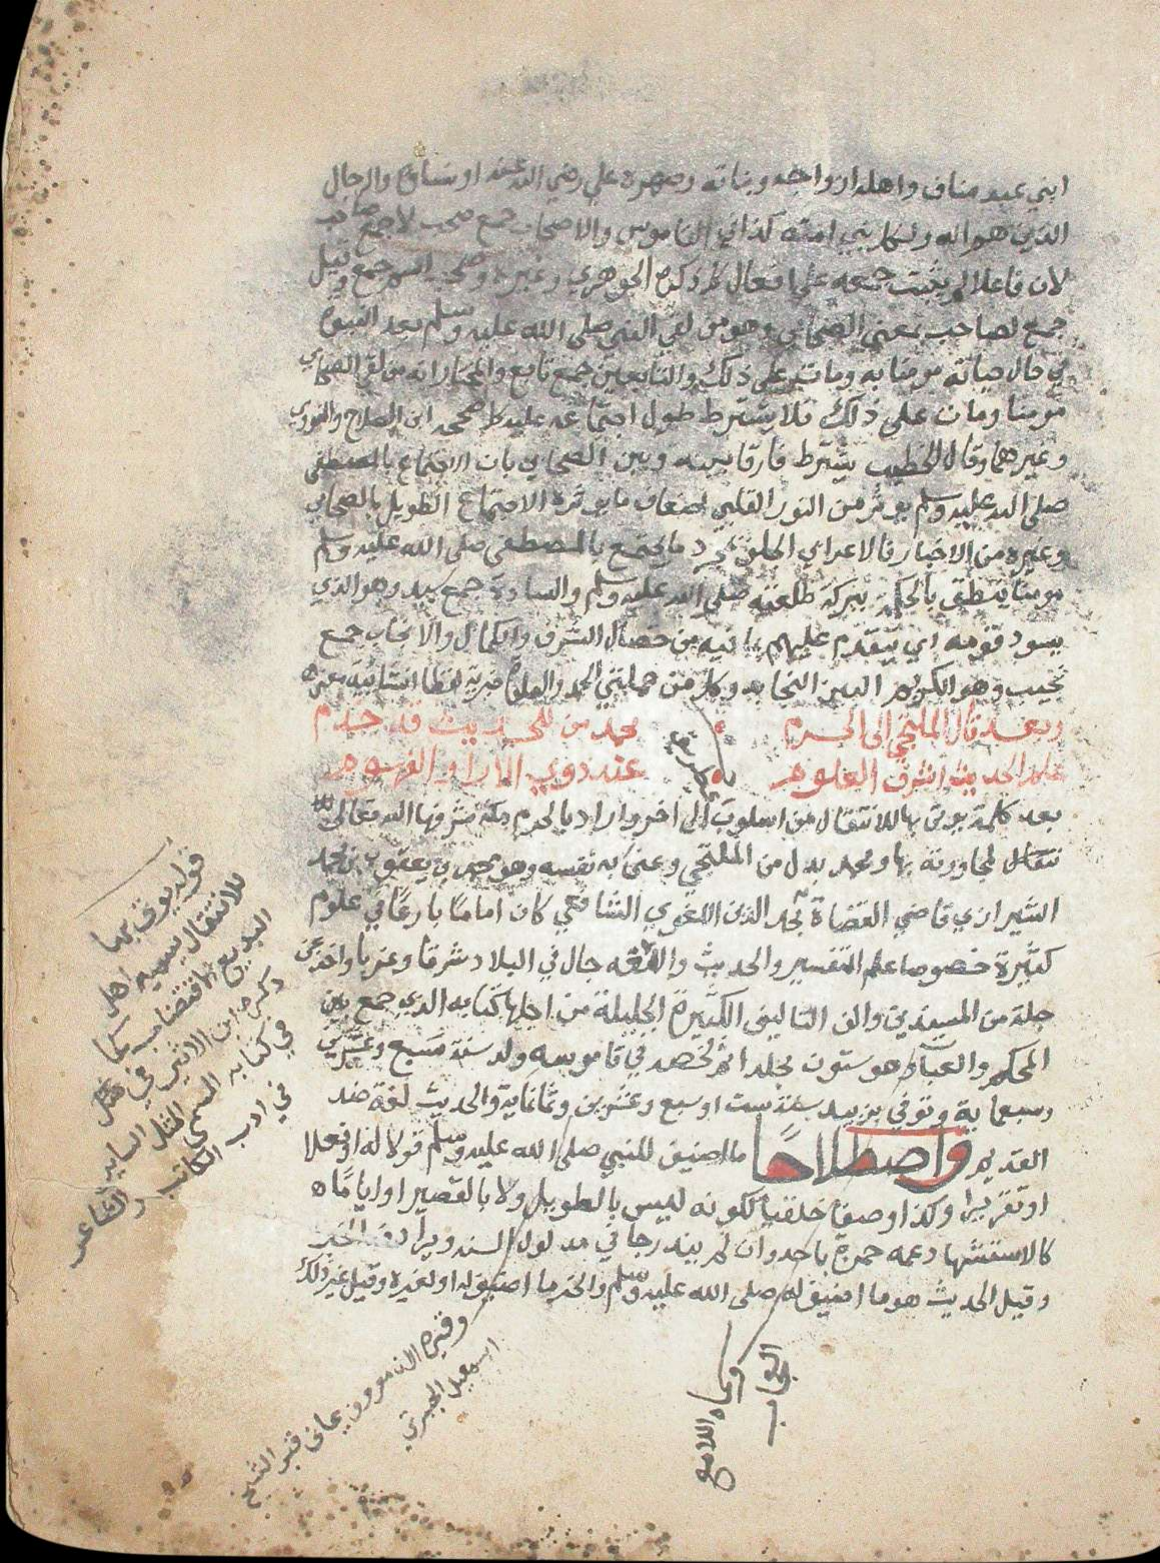 ابني عبد مناف واهله ازواجه وبناته وصهره علي رضي الله عنه او نساؤه والرجال
الذين هم اله ولكل نبي امته كذا في القاموس والاصحاب جمع صحب لا جمع صاحب
لان فاعلا لم يثبت جمعه على افعال كما ذكره الجوهري وغيره وصحب اسم جمع وقيل
جمع لصاحب بمعنى الصحابي وهو من لقي النبي صلى الله عليه وسلم بعد النبوة
في حال حياته مومنا به ومات على ذلك والتابعين جمع تابع والمختار انه من لقي الصحابي
مومنا ومات على ذلك فلا يشترط طول اجتماعه عليه كما صححه ابن الصلاح والنووي
وغيرهما وقال الخطيب يشترط فارقا بينه وبين الصحابي بان الاجتماع بالمصطفى
صلى الله عليه وسلم يوثر من النور القلبي اضعاف ما يوثره الاجتماع الطويل بالصحابي
وغيره من الاخيار فالاعرابي الجلف بمجرد ما يجتمع بالمصطفى صلى الله عليه وسلم
مومنا ينطق بالحكمة ببركة طلعته صلى الله عليه وسلم والسادة جمع سيد وهو الذي
يسود قومه اي يتقدم عليهم بما فيه من خصال الشرف والكمال والانجاب جمع
نجيب وهو الكريم البين النجابه وكل من جملتي الحمد والصلوة خبرية لفظا انشائية معنى
وبعد قال الملتجي الى الحرم محمد من للحديث قد خدم
علم الحديث اشرف العلوم عند ذوي الاراء والفهوم
بعد كلمة يوتى بها للانتقال من اسلوب الى اخر واراد بالحرم مكة شرفها الله تعالى
لمجاورته بها ومحمد بدل من الملتجي وعنى به نفسه وهو محمد بن يعقوب بن محمد
الشيرازي قاضي القضاة مجد الدين اللغوي الشافعي كان اماما بارعا في علوم
كثيرة خصوصا علم التفسير والحديث والفقه جال في البلاد شرقا وغربا واخذ عن
جلة من المسندين والف التاليف الكثيرة الجليلة من اجلها كتابه الذي جمع بين
المحكم والعباب هو ستون مجلدا ثم لخصه في قاموسه ولد سنة تسع وعشرين
وسبعماية وتوفي بزبيد سنة ست او سبع وعشرين وثمانماية والحديث لغة ضد
القديم واصطلاحا ما اضيف للنبي صلى الله عليه وسلم قولا له او فعلا
او تقريرا وكذا وصفا خلقيا ككونه ليس بالطويل ولا بالقصير او اياما
كالاستشهاد عمه حمزة باحد وان لم يندرجا في مدلول السند ويرادفه الخبر
وقيل الحديث هو ما اضيف له صلى الله عليه وسلم والخبر ما اضيف له او لغيره وقيل غير ذلك
قوله يوتى بها
للانتقال يسميه اهل
البديع الاقتضاب كما
ذكره ابن الاثير في
في كتابه المسمى المثل الساير
في ادب الكاتب والشاعر
وقبره الان معروف يماني قبر الشيخ
اسمعيل الجبرتي
وسماه اللامع